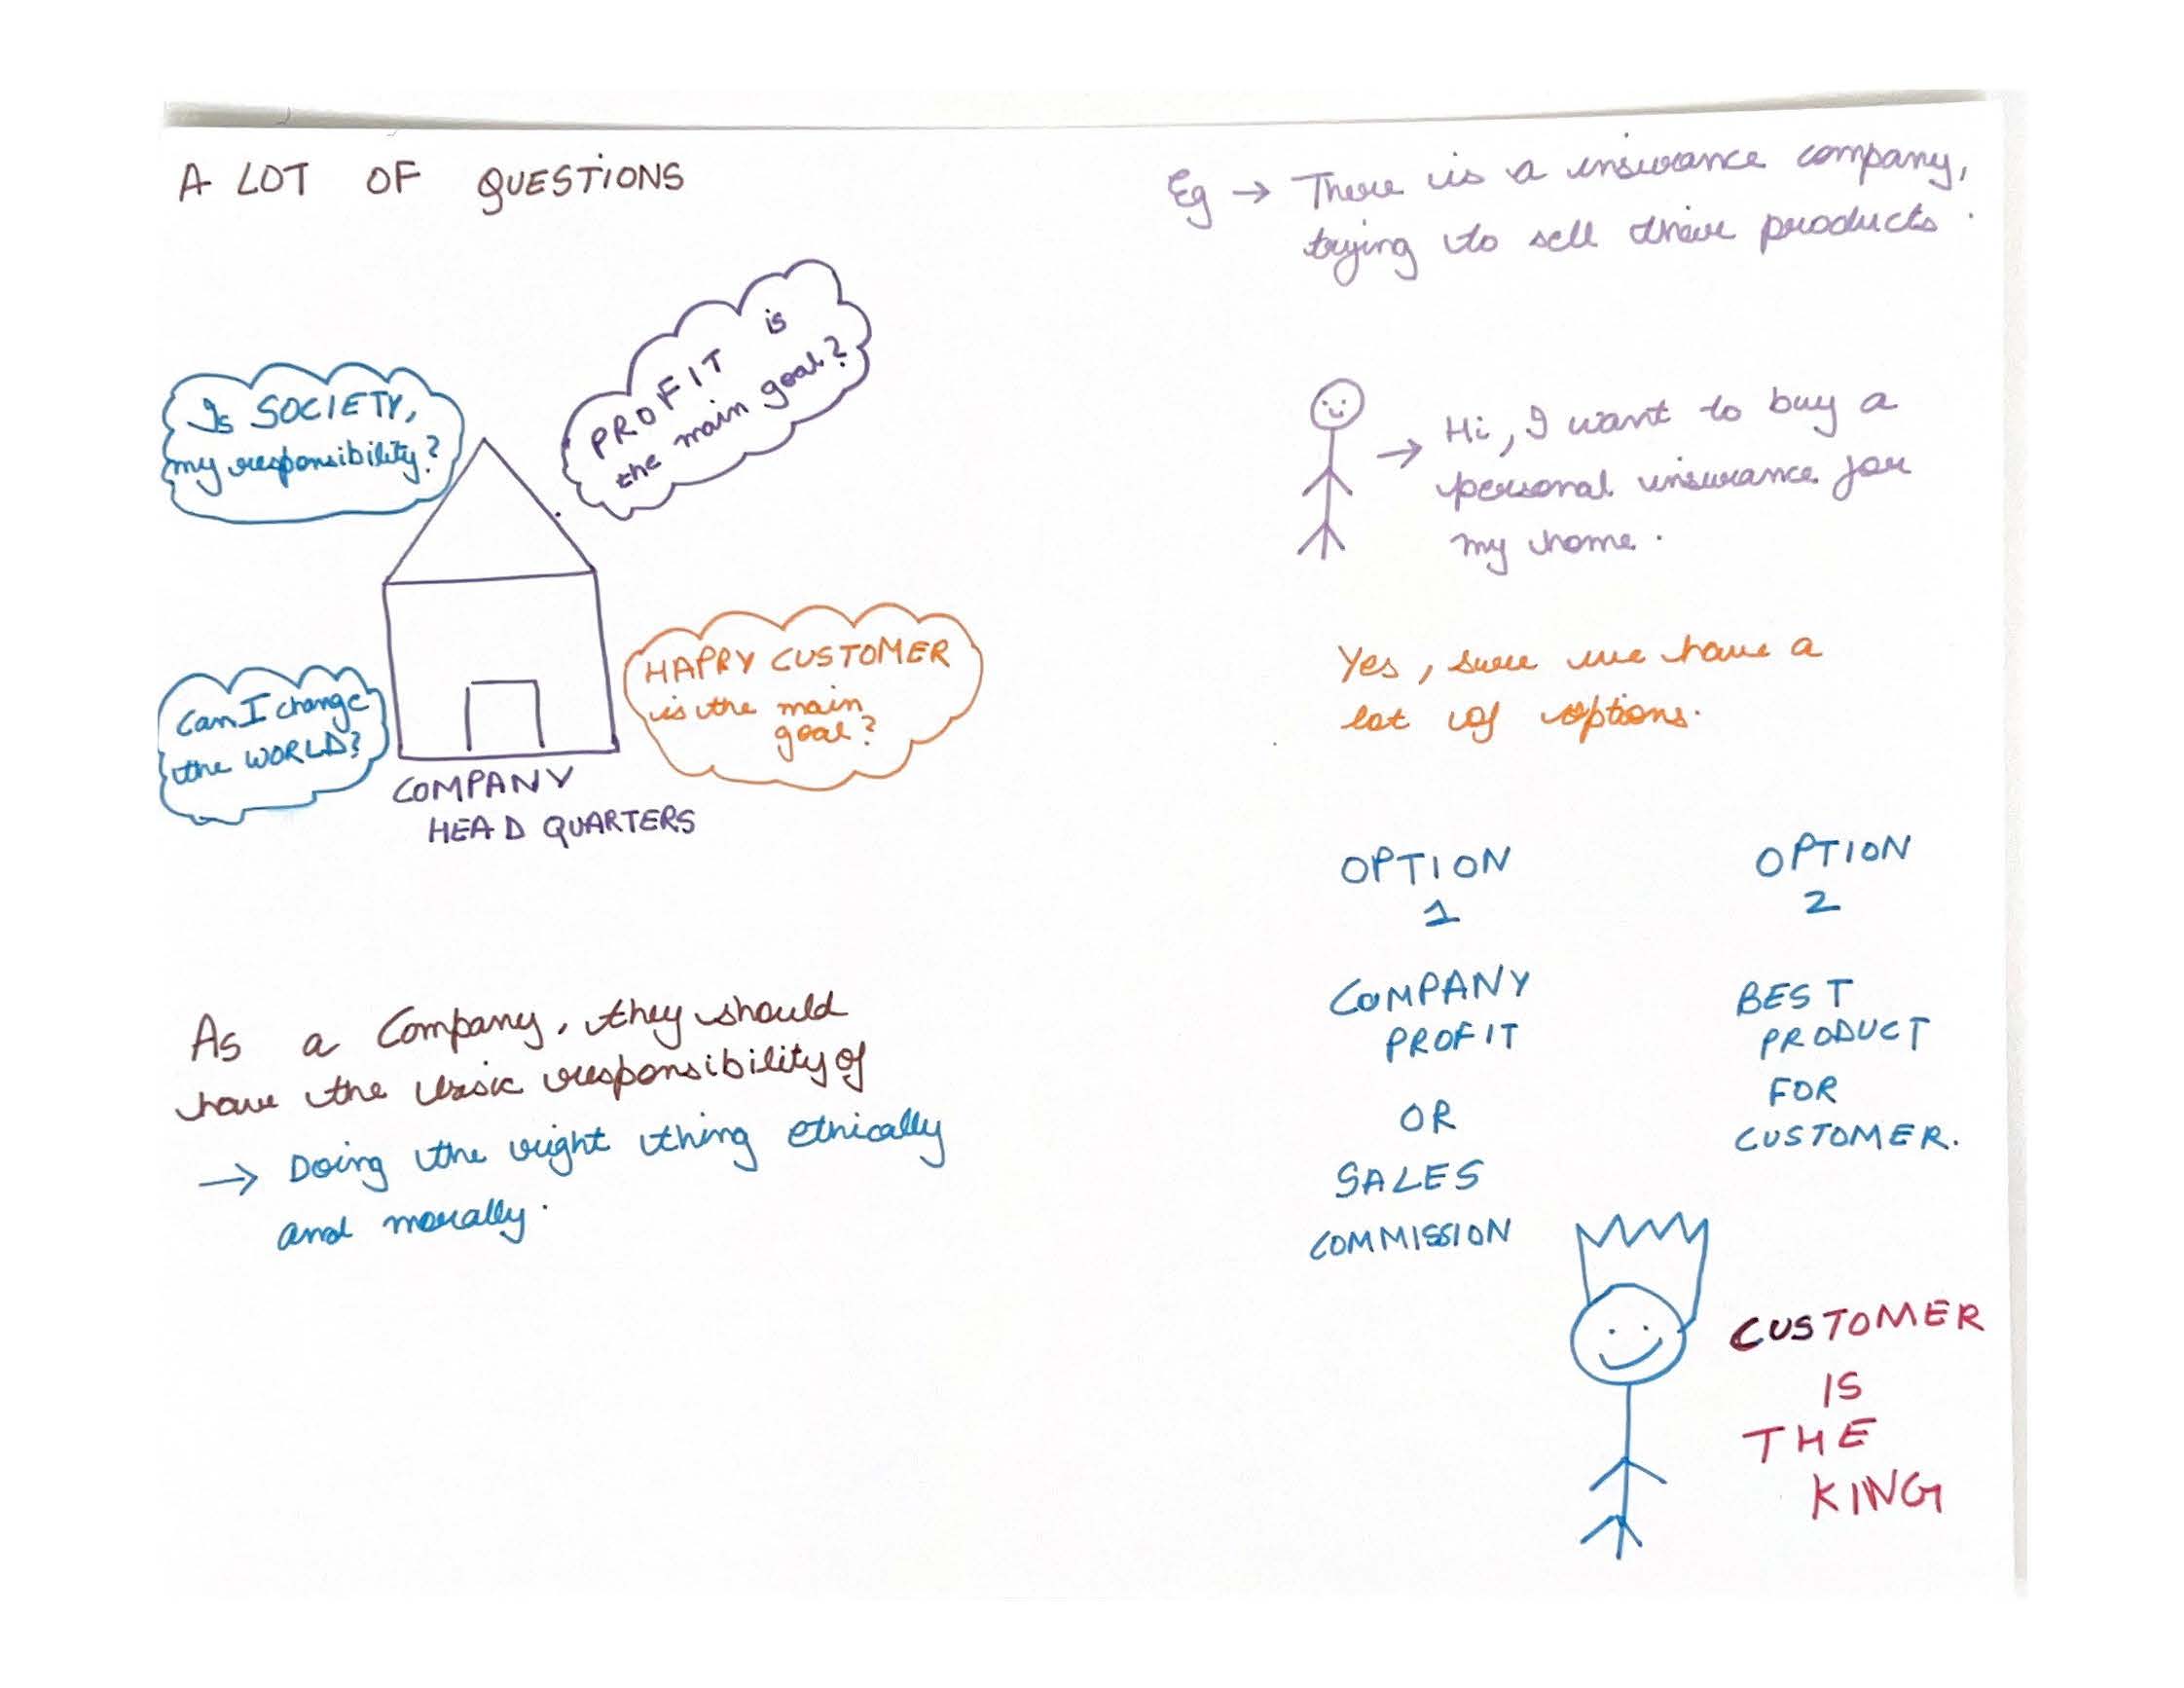 A LOT OF QUESTIONS
Is SOCIETY,
my responsibility?
PROFIT is
the main goal?
Can I change
the WORLD?
HAPPY CUSTOMER
is the main
goal?
COMPANY
HEAD QUARTERS
As a Company, they should
have the basic responsibility of
→ Doing the right thing ethically
and morally.
Eg → There is a insurance company,
trying to sell their products.
→ Hi, I want to buy a
personal insurance for
my home.
Yes, sure we have a
lot of options.
OPTION
1
COMPANY
PROFIT
OR
SALES
COMMISSION
OPTION
2
BEST
PRODUCT
FOR
CUSTOMER.
CUSTOMER
IS
THE
KING